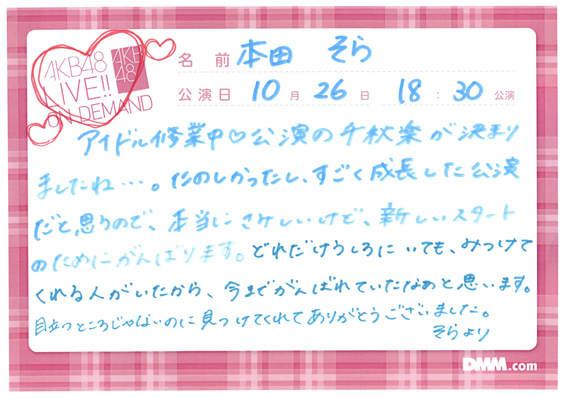 AKB48
LIVE!!
ON DEMAND
AKB
48
名前 本田 そら
公演日 10月26日 18:30公演
アイドル修業中♡公演の千秋楽が決まり
ましたね…。たのしかったし、すごく成長した公演
だと思うので、本当にさみしいけど、新しいスタート
のためにがんばります。どれだけうしろにいても、みつけて
くれる人がいたから、今までがんばれていたなぁと思います。
目立つところじゃないのに見つけてくれてありがとうございました。
そらより
DMM.com